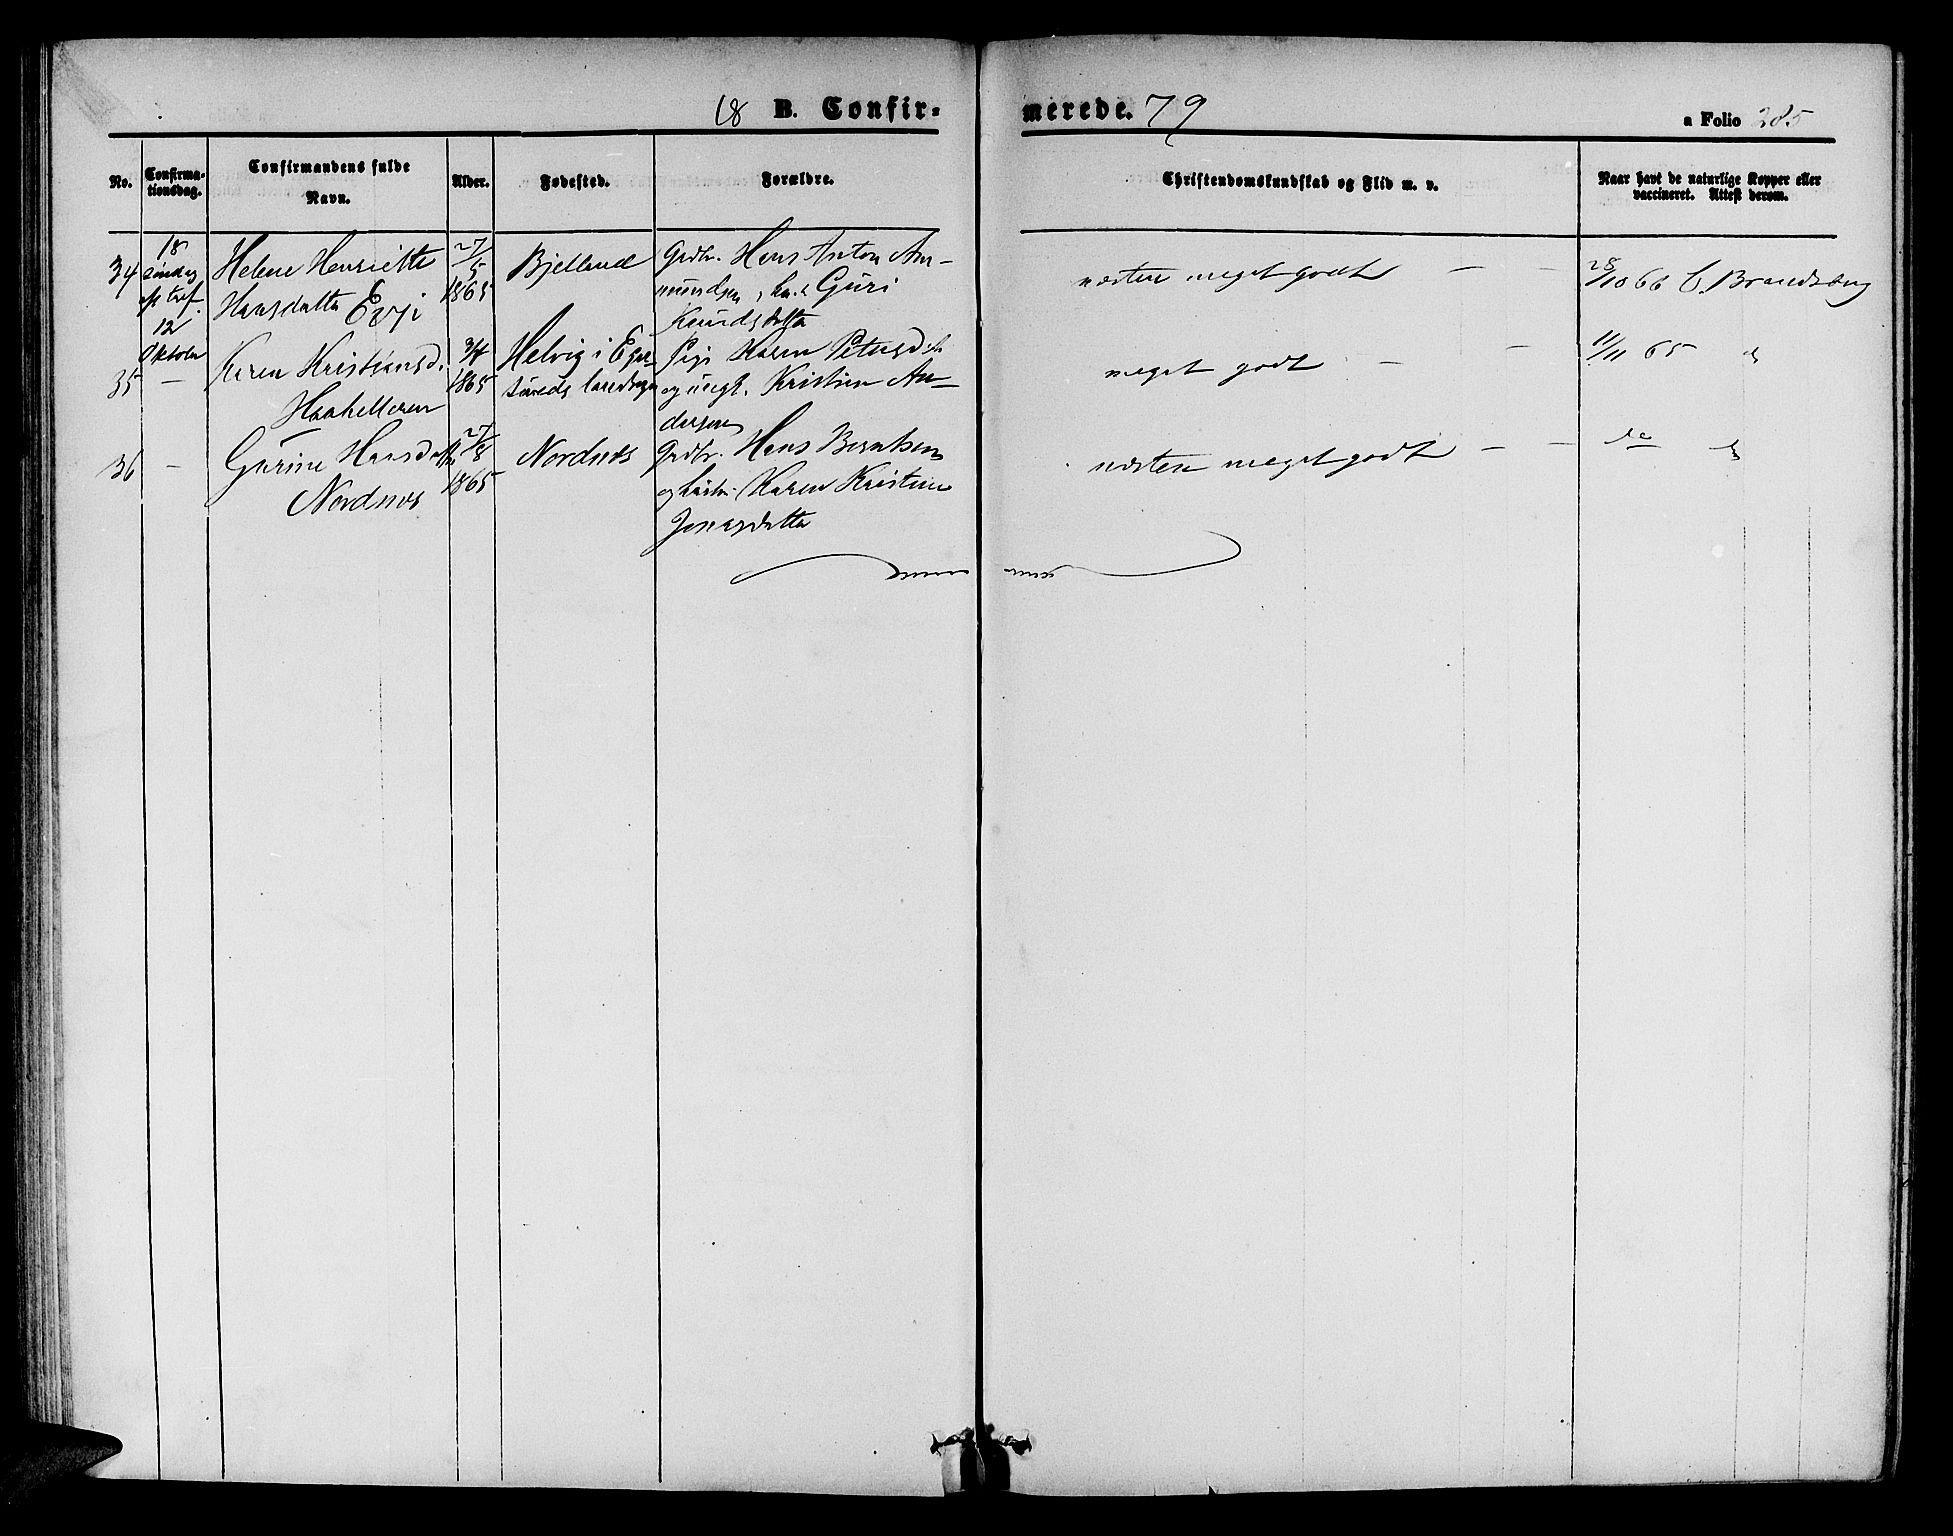 18 B. Confir-
merede. 79
a Folio 285
No.
Confirma-
tionsdag.
Confirmandens fulde
Navn.
Alder.
Fødested.
Forældre.
Christendomskundskab og Flid m. v.
Naar havt de naturlige Kopper eller
vaccineret. Attest derom.
34
18
Søndag
eft tref.
12
Oktober
Helene Henriette
Hansdatter Evje
27/5
1865
Bjelland
Grdbr. Hans Anton Am-
mundsen, Guri
Knudsdatter
næsten meget godt — —
28/10 66 C. Brandsberg
35
—
Karen Kristiansd.
Haahelleren
3/4
1865
Helvig i Eger-
sunds landsogn
Pige Karen Petersd.
og ungk. Kristian An-
dersen
meget godt — —
11/11 65
36
—
Gurine Hansdatter
Nordnes
27/8
1865
Nordnes
Grdbr. Hans Berntsen
og hustr. Karen Kristine
Jonasdatter
næsten meget godt — —
do